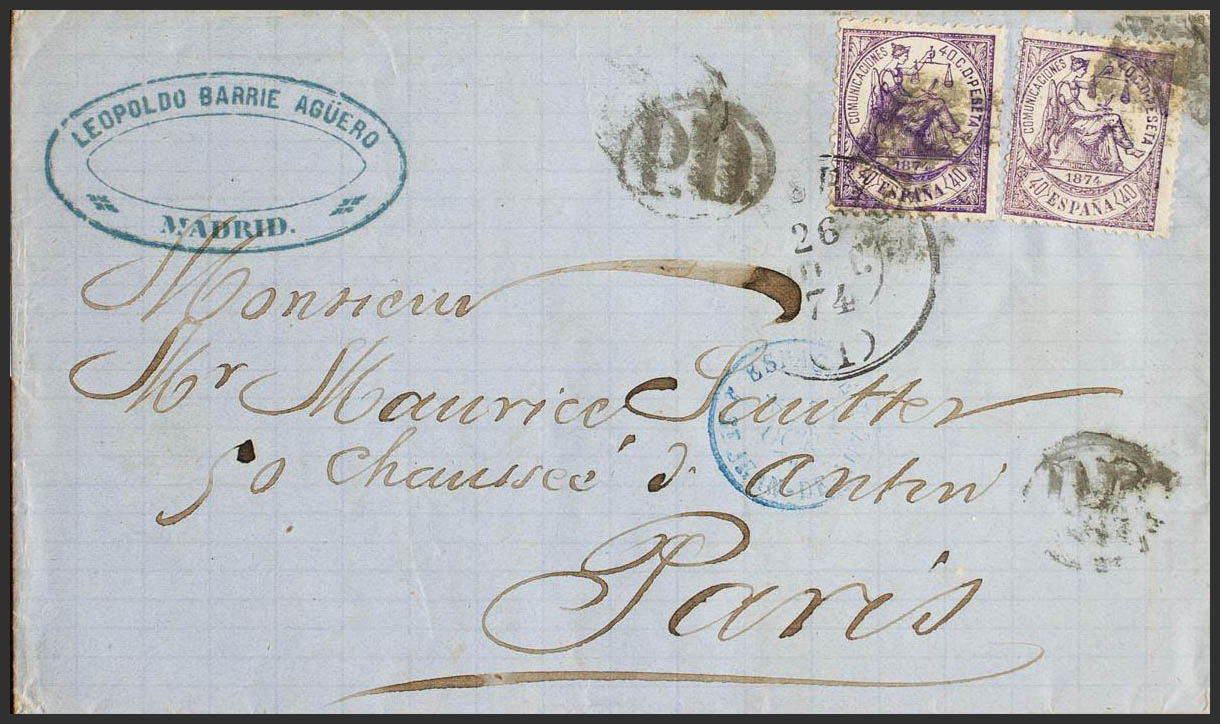 LEOPOLDO BARRIE AGÜERO
MADRID.
P.D.
COMUNICACIONES 40 C. D PESETA
1874
40 ESPAÑA 40
COMUNICACIONES 40 C. D PESETA
1874
40 ESPAÑA 40
26
74
(1)
Monsieur
Mr Maurice Sautter
50 Chausseé d'Antin
Paris